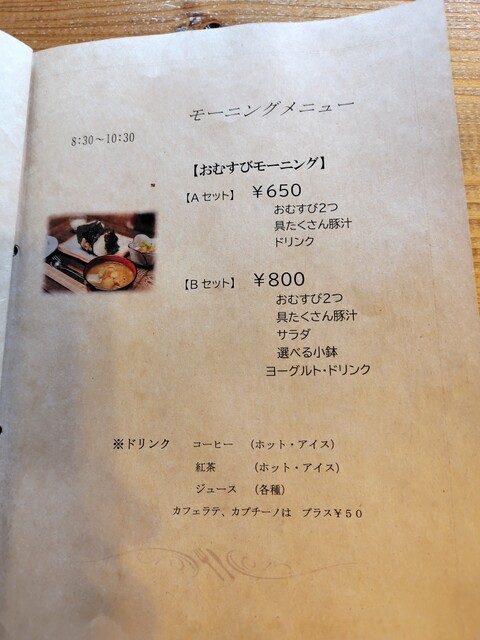 モーニングメニュー
8:30～10:30
【おむすびモーニング】
【Aセット】 ￥650
おむすび2つ
具たくさん豚汁
ドリンク
【Bセット】 ￥800
おむすび2つ
具たくさん豚汁
サラダ
選べる小鉢
ヨーグルト・ドリンク
※ドリンク コーヒー （ホット・アイス）
紅茶 （ホット・アイス）
ジュース （各種）
カフェラテ、カプチーノは プラス￥５０